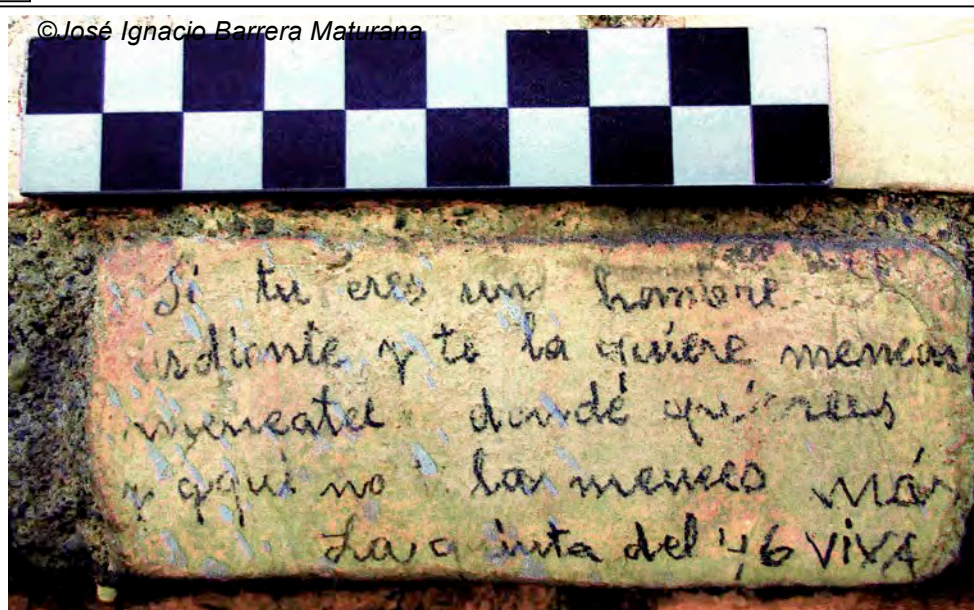 ©José Ignacio Barrera Maturana
Si tu eres un hombre
ardiente y te la quiere menear
meneatel donde quieres
y aqui no la menees más
La quinta del 46 VIVA